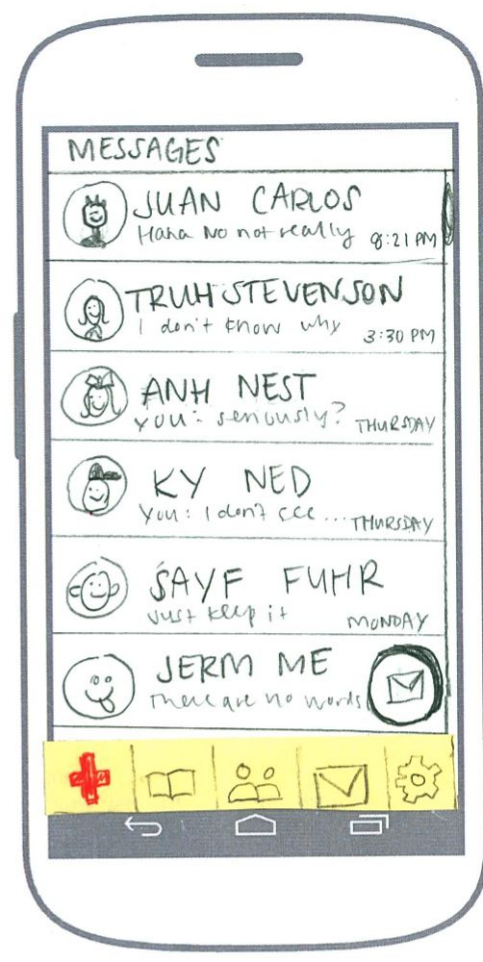 MESSAGES
JUAN CARLOS
Haha No not really 8:21 PM
TRUH STEVENSON
I don't know why 3:30 PM
ANH NEST
You: seriously? THURSDAY
KY NED
You: I don't see ... THURSDAY
SAYF FUHR
Just keep it MONDAY
JERM ME
There are no words